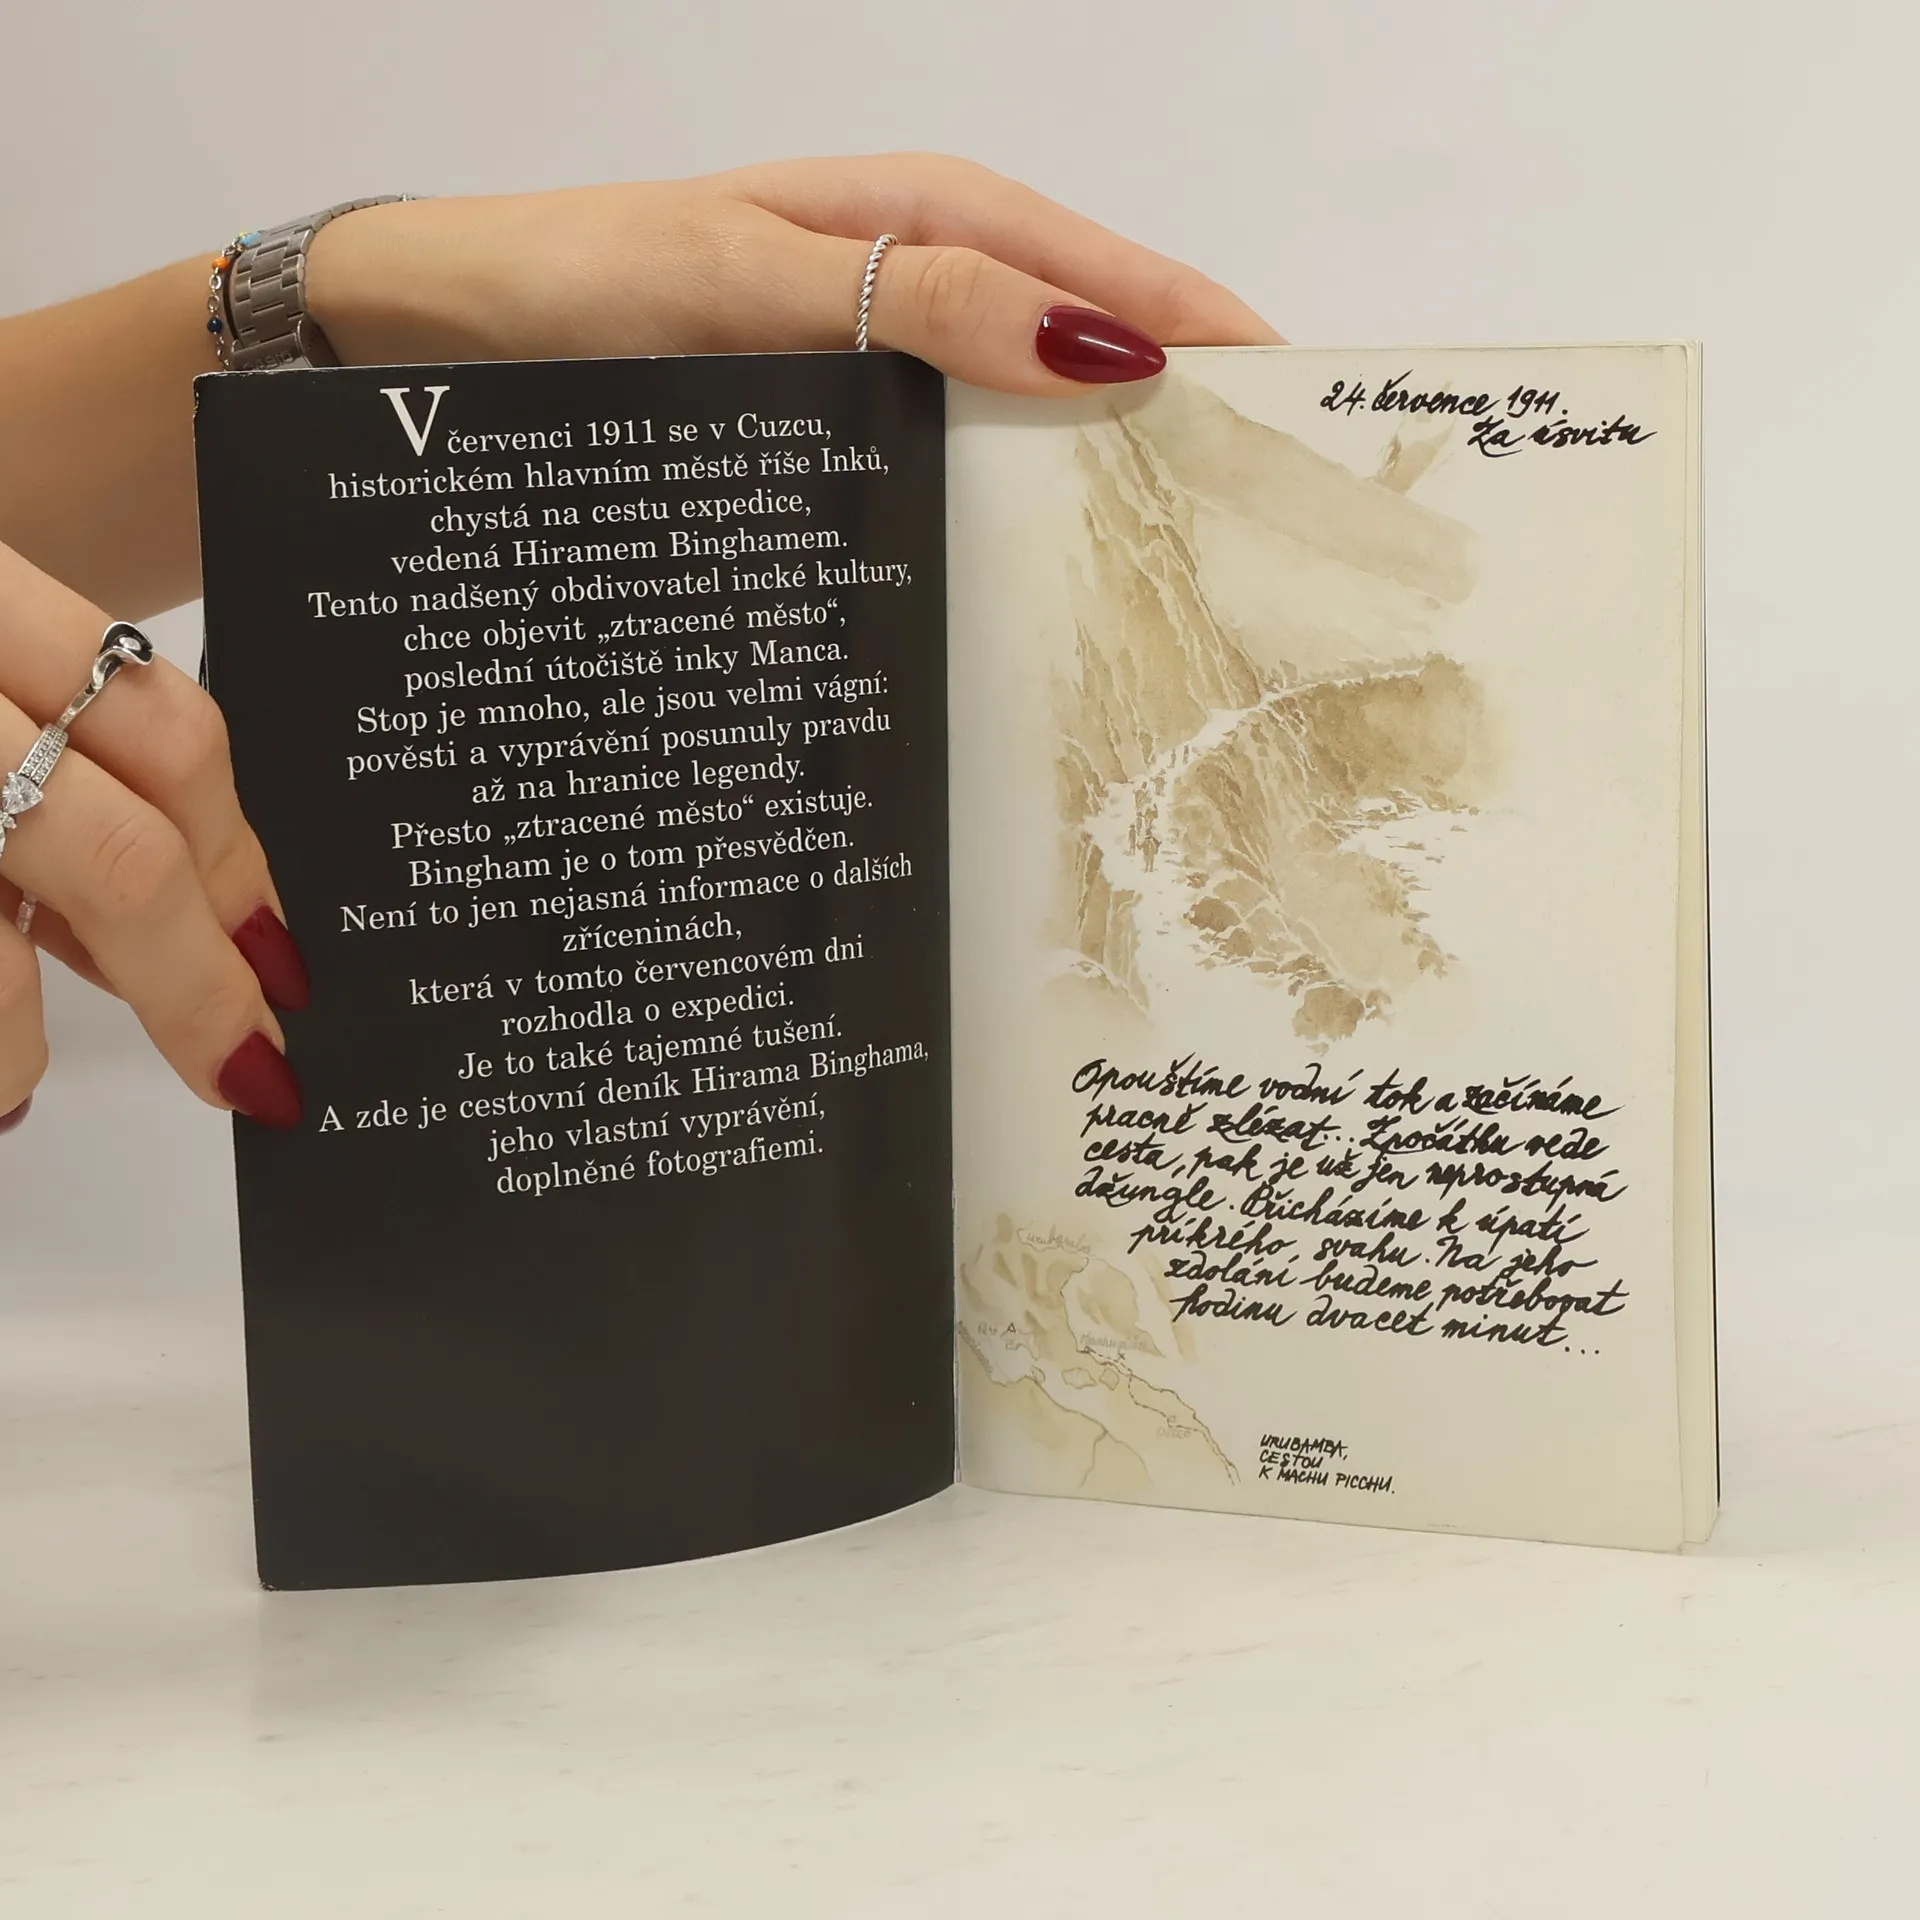 CASIO
V červenci 1911 se v Cuzcu,
historickém hlavním městě říše Inků,
chystá na cestu expedice,
vedená Hiramem Binghamem.
Tento nadšený obdivovatel incké kultury,
chce objevit „ztracené město“,
poslední útočiště inky Manca.
Stop je mnoho, ale jsou velmi vágní:
pověsti a vyprávění posunuly pravdu
až na hranice legendy.
Přesto „ztracené město“ existuje.
Bingham je o tom přesvědčen.
Není to jen nejasná informace o dalších
zříceninách,
která v tomto červencovém dni
rozhodla o expedici.
Je to také tajemné tušení.
A zde je cestovní deník Hirama Binghama,
jeho vlastní vyprávění,
doplněné fotografiemi.
24. července 1911.
Za úsvitu
Opouštíme vodní tok a začínáme
pracně zlézat... Zpočátku vede
cesta, pak je už jen neprostupná
džungle. Přicházíme k úpatí
příkrého svahu. Na jeho
zdolání budeme potřebovat
hodinu dvacet minut...
Urubamba
URUBAMBA,
CESTOU
K MACHU PICCHU.